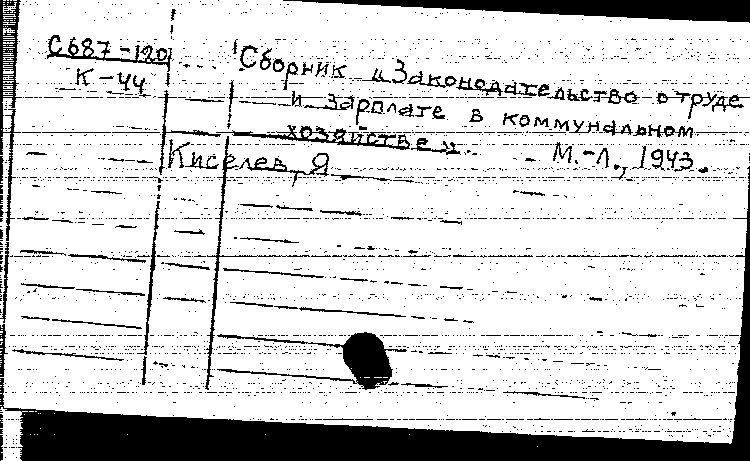 С687-120
К-44
Сборник «Законодательство о труде
и зарплате в коммунальном
хозяйстве».
- М.-Л., 1943.
Киселев, Я